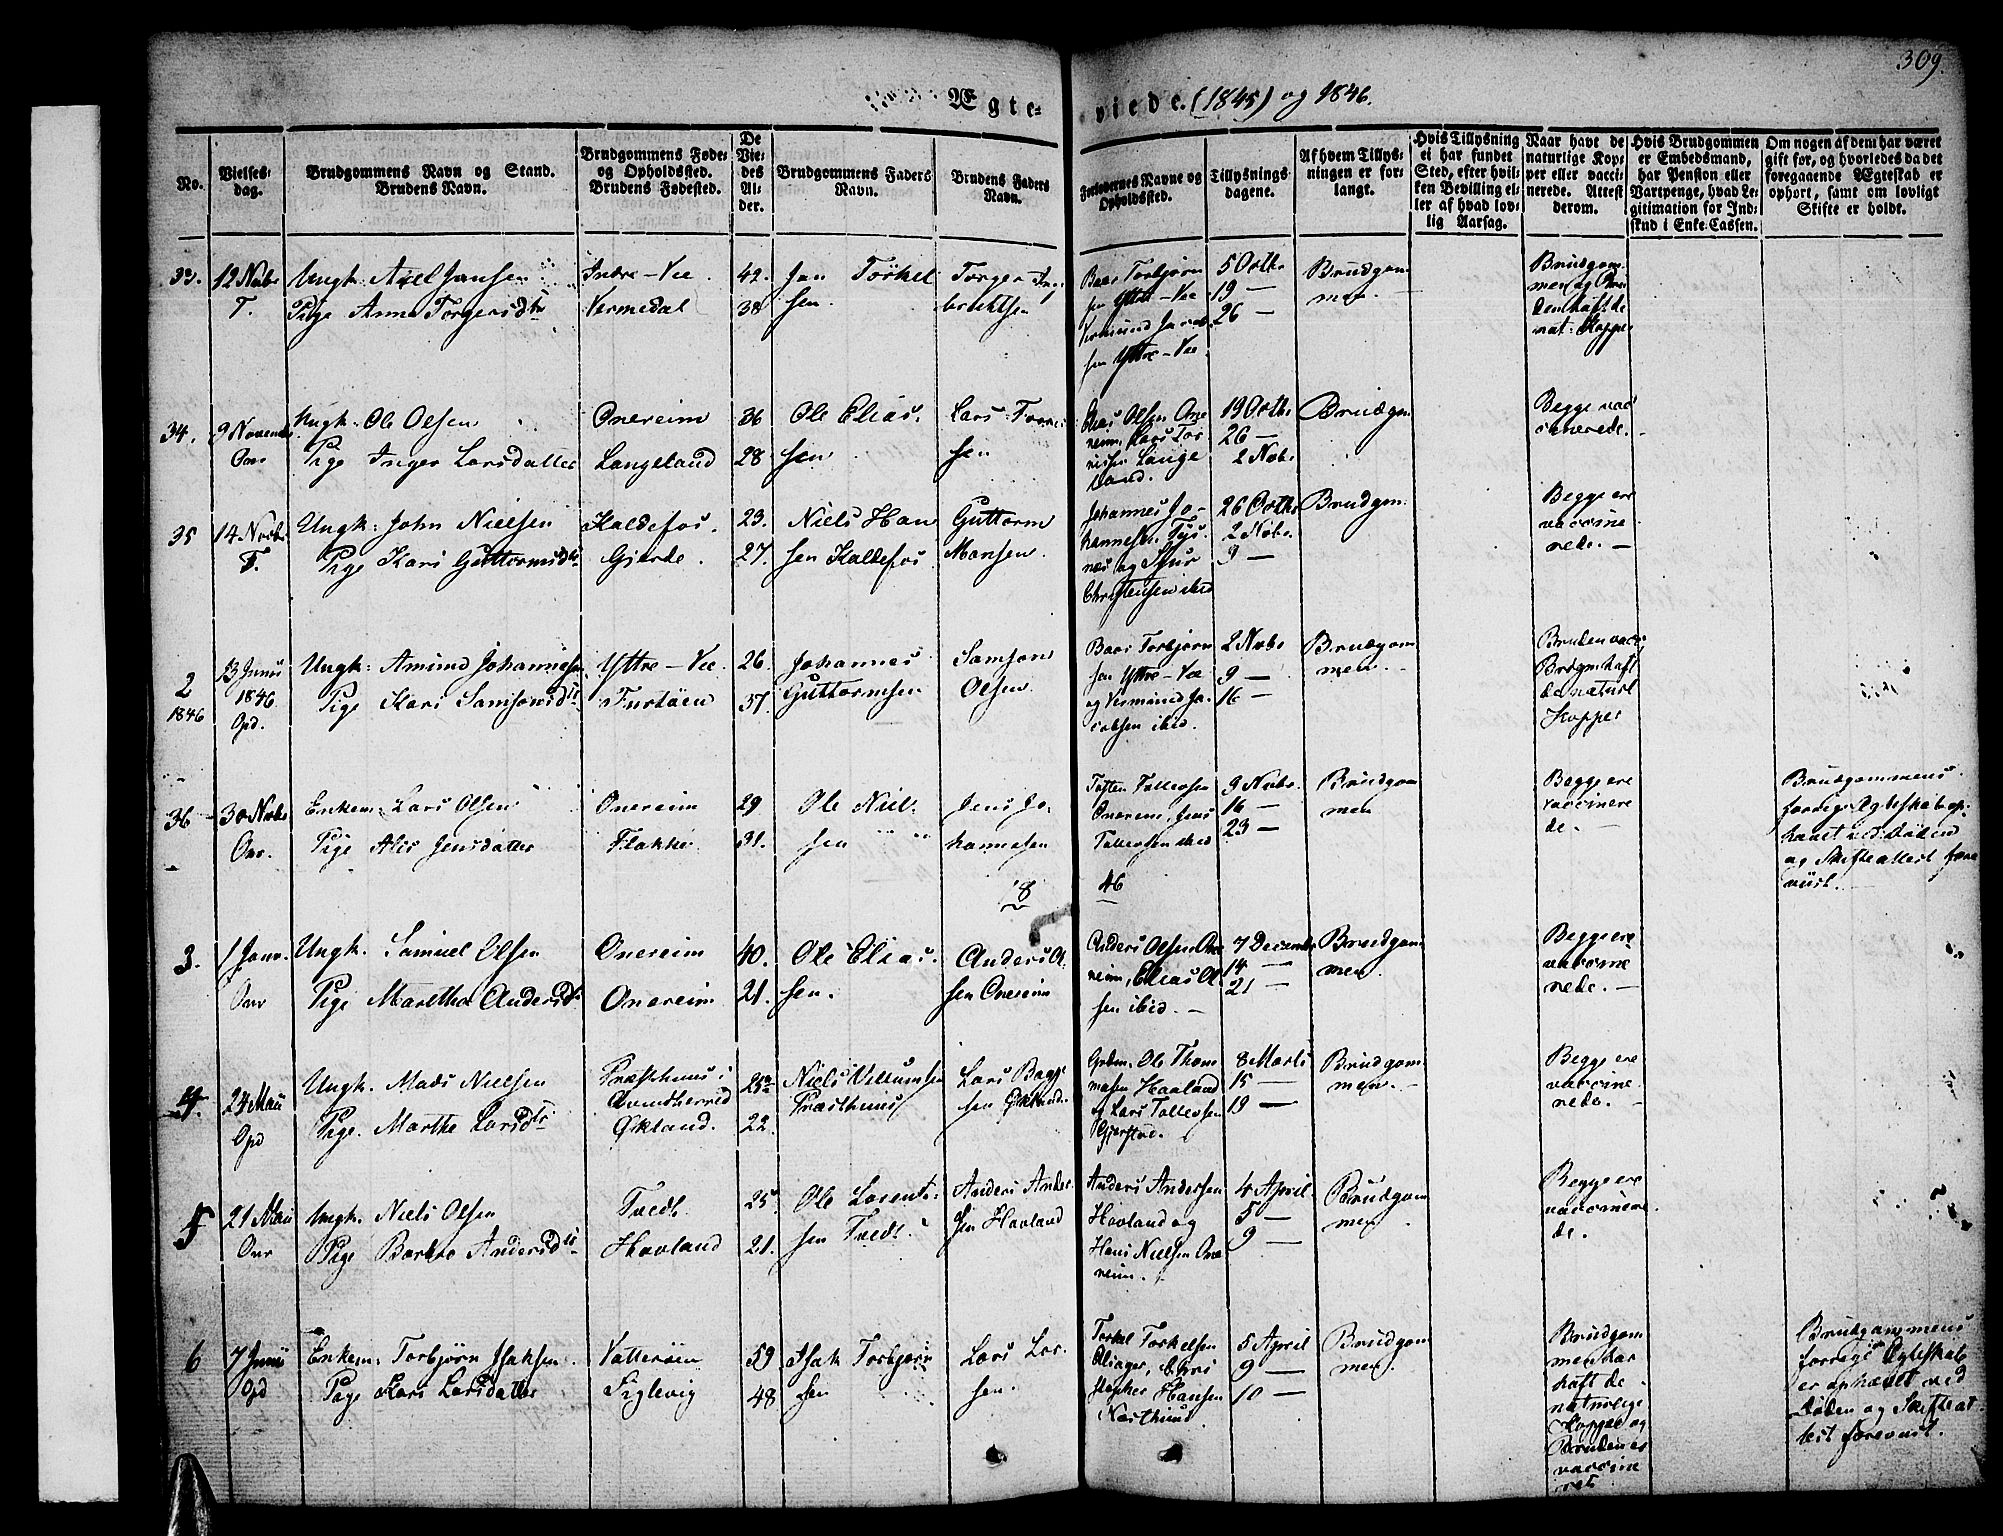 309.
Ægte-
viede. (1845) og 1846.
No.
Vielses-
dag.
Brudgommens Navn og Stand.
Brudens Navn.
Brudgommens Føde-
og Opholdssted.
Brudens Fødested.
De
Vie-
des
Al-
der.
Brudgommens Faders
Navn.
Brudens Faders
Navn.
Forlovernes Navne og
Opholdssted.
Tillysnings
dagene.
Af hvem Tillys-
ningen er for-
langt.
Hvis Tillysning
ei har fundet
Sted, efter hvil-
ken Bevilling el-
ler af hvad lov-
lig Aarsag.
Naar havt de
naturlige Kop-
per eller vacci-
nerede. Attest
derom.
Hvis Brudgommen
er Embedsmand,
har Pension eller
Vartpenge, hvad Le-
gitimation for Ind-
skud i Enke-Cassen.
Om nogen af dem har været
gift før, og hvorledes da det
foregaaende Ægteskab er
ophørt, samt om lovligt
Skifte er holdt.
33.
12 Novbr
T.
Ungk: Axel Jansen
Pige Anna Torgersdtr
Indre-Vee
Vermedal
42.
38
Jan Torkel
sen.
Torger Ing
brechtsen
Baar Torbjørn
sen Yttre-Vee
Vermund Jacob
sen Yttre-Vee.
5 Octbr
19 —
26 —
Brudgom
men.
Brudgom
men og Bru
den haft de
nat: Kopper
34.
9 November
Onr
Ungk: Ole Olsen
Pige Inger Larsdatter
Onereim
Langeland
36
28
Ole Elias.
sen
Lars Tor
sen
Elias Olsen One
reim, Lars Tor
Lange
land.
19 Octbr
26 —
2 Novbr
Brudgom
Begge vac
cinerede.
35
14 Novbr
T.
Ungk: John Nielsen
Pige Kari Guttormsdtr
Kaldefos.
Gjerde.
23.
27.
Niels Han
sen Kaldefos
Guttorm
Monsen.
Johannes Jo-
hannesen Tys-
næs og Sjur
Christensen ibid
26 Octbr
2 Novbr.
9 —
Brudgom.
Begge ere
vaccine-
rede. —
2
1846
13 Junii
1846
Opd.
Ungk: Amund Johannesen
Pige Kari Samsonsdtr
Yttre-Vee
26.
37.
Johannes
Guttormsen
Samson
Olsen
Baar Torbjørn
sen Yttre-Vee
og Vermund Ja-
cobsen ibid.
2 Novbr
9 —
16 —
Brudgom
men. —
Bruden vacc:
Brdgm haft
de naturl
Kopper
36
30 Novbr
Onr.
Enkem: Lars Olsen
Pige Alis Jensdatter
Onereim
Flakke
29
31.
Ole Niel-
sen
Jens Jo-
hannesen
Totten Tollevsen
Onereim, Jens
Tollevsen ibid
9 Novbr.
16 —
23 —
Brudgom
men
Begge ere
vaccinere
de. —
Brudgommens
forrige Ægteskab op-
hævet ved Døden
og Skifteattest fore
viist. —
18
46
3.
1 Janr.
Onr
Ungk. Samuel Olsen
Pige Maretha Andersdtr
Onereim
Onereim
40.
21.
Ole Elias.
sen.
Anders Ol
sen Onereim
Anders Olsen One
reim, Elias Ol
sen ibid. —
7 December
14 —
21 —
Brudgom
men.
Begge ere
vaccine
rede. —
4.
24 Maii
Opd
Ungk. Mads Nielsen
Pige. Marthe Larsdtr
Præsthuus i
Qvindherred
Økland.
25
22.
Niels Villumsen
Præsthuus
Lars Bagge
sen Økland.
Grdm. Ole Thom
masen Haaland
og Lars Tollevsen
Gjerstad.
8 Marts
15 —
19 —
Brudgom
men. —
Begge ere
vaccine.
rede. —
5
21 Maii
Onr
Ungk. Niels Olsen
Pige Barbro Andersdtr
Tvedt.
Hovland
25
21.
Ole Lorent-
sen Tvedt
Anders Ander
sen Hovland
Anders Andersen
Hovland og
Hans Nielsen One
reim.
4 April.
5 —
9 —
Brudgom
men
Begge ere
vaccinere
de.
6
7 Junii
Opd
Enkem: Torbjørn Isaksen
Pige Kari Larsdatter
Vatterøen
Siglevig
59
48
Isak Torbjørn
sen
Lars Lar-
sen.
Torkel Torkelsen
Oliager, Chri
stopher Hansen
Næsthuus
5 April
9 —
10 —
Brudgom
men.
Brudgom
men har
haft de
naturlige
Kopper og
Bruden er
vaccine
ret.
Brudgommens
forrige Ægteskab
er ophævet ved
Døden og Skifteat
test foreviist.